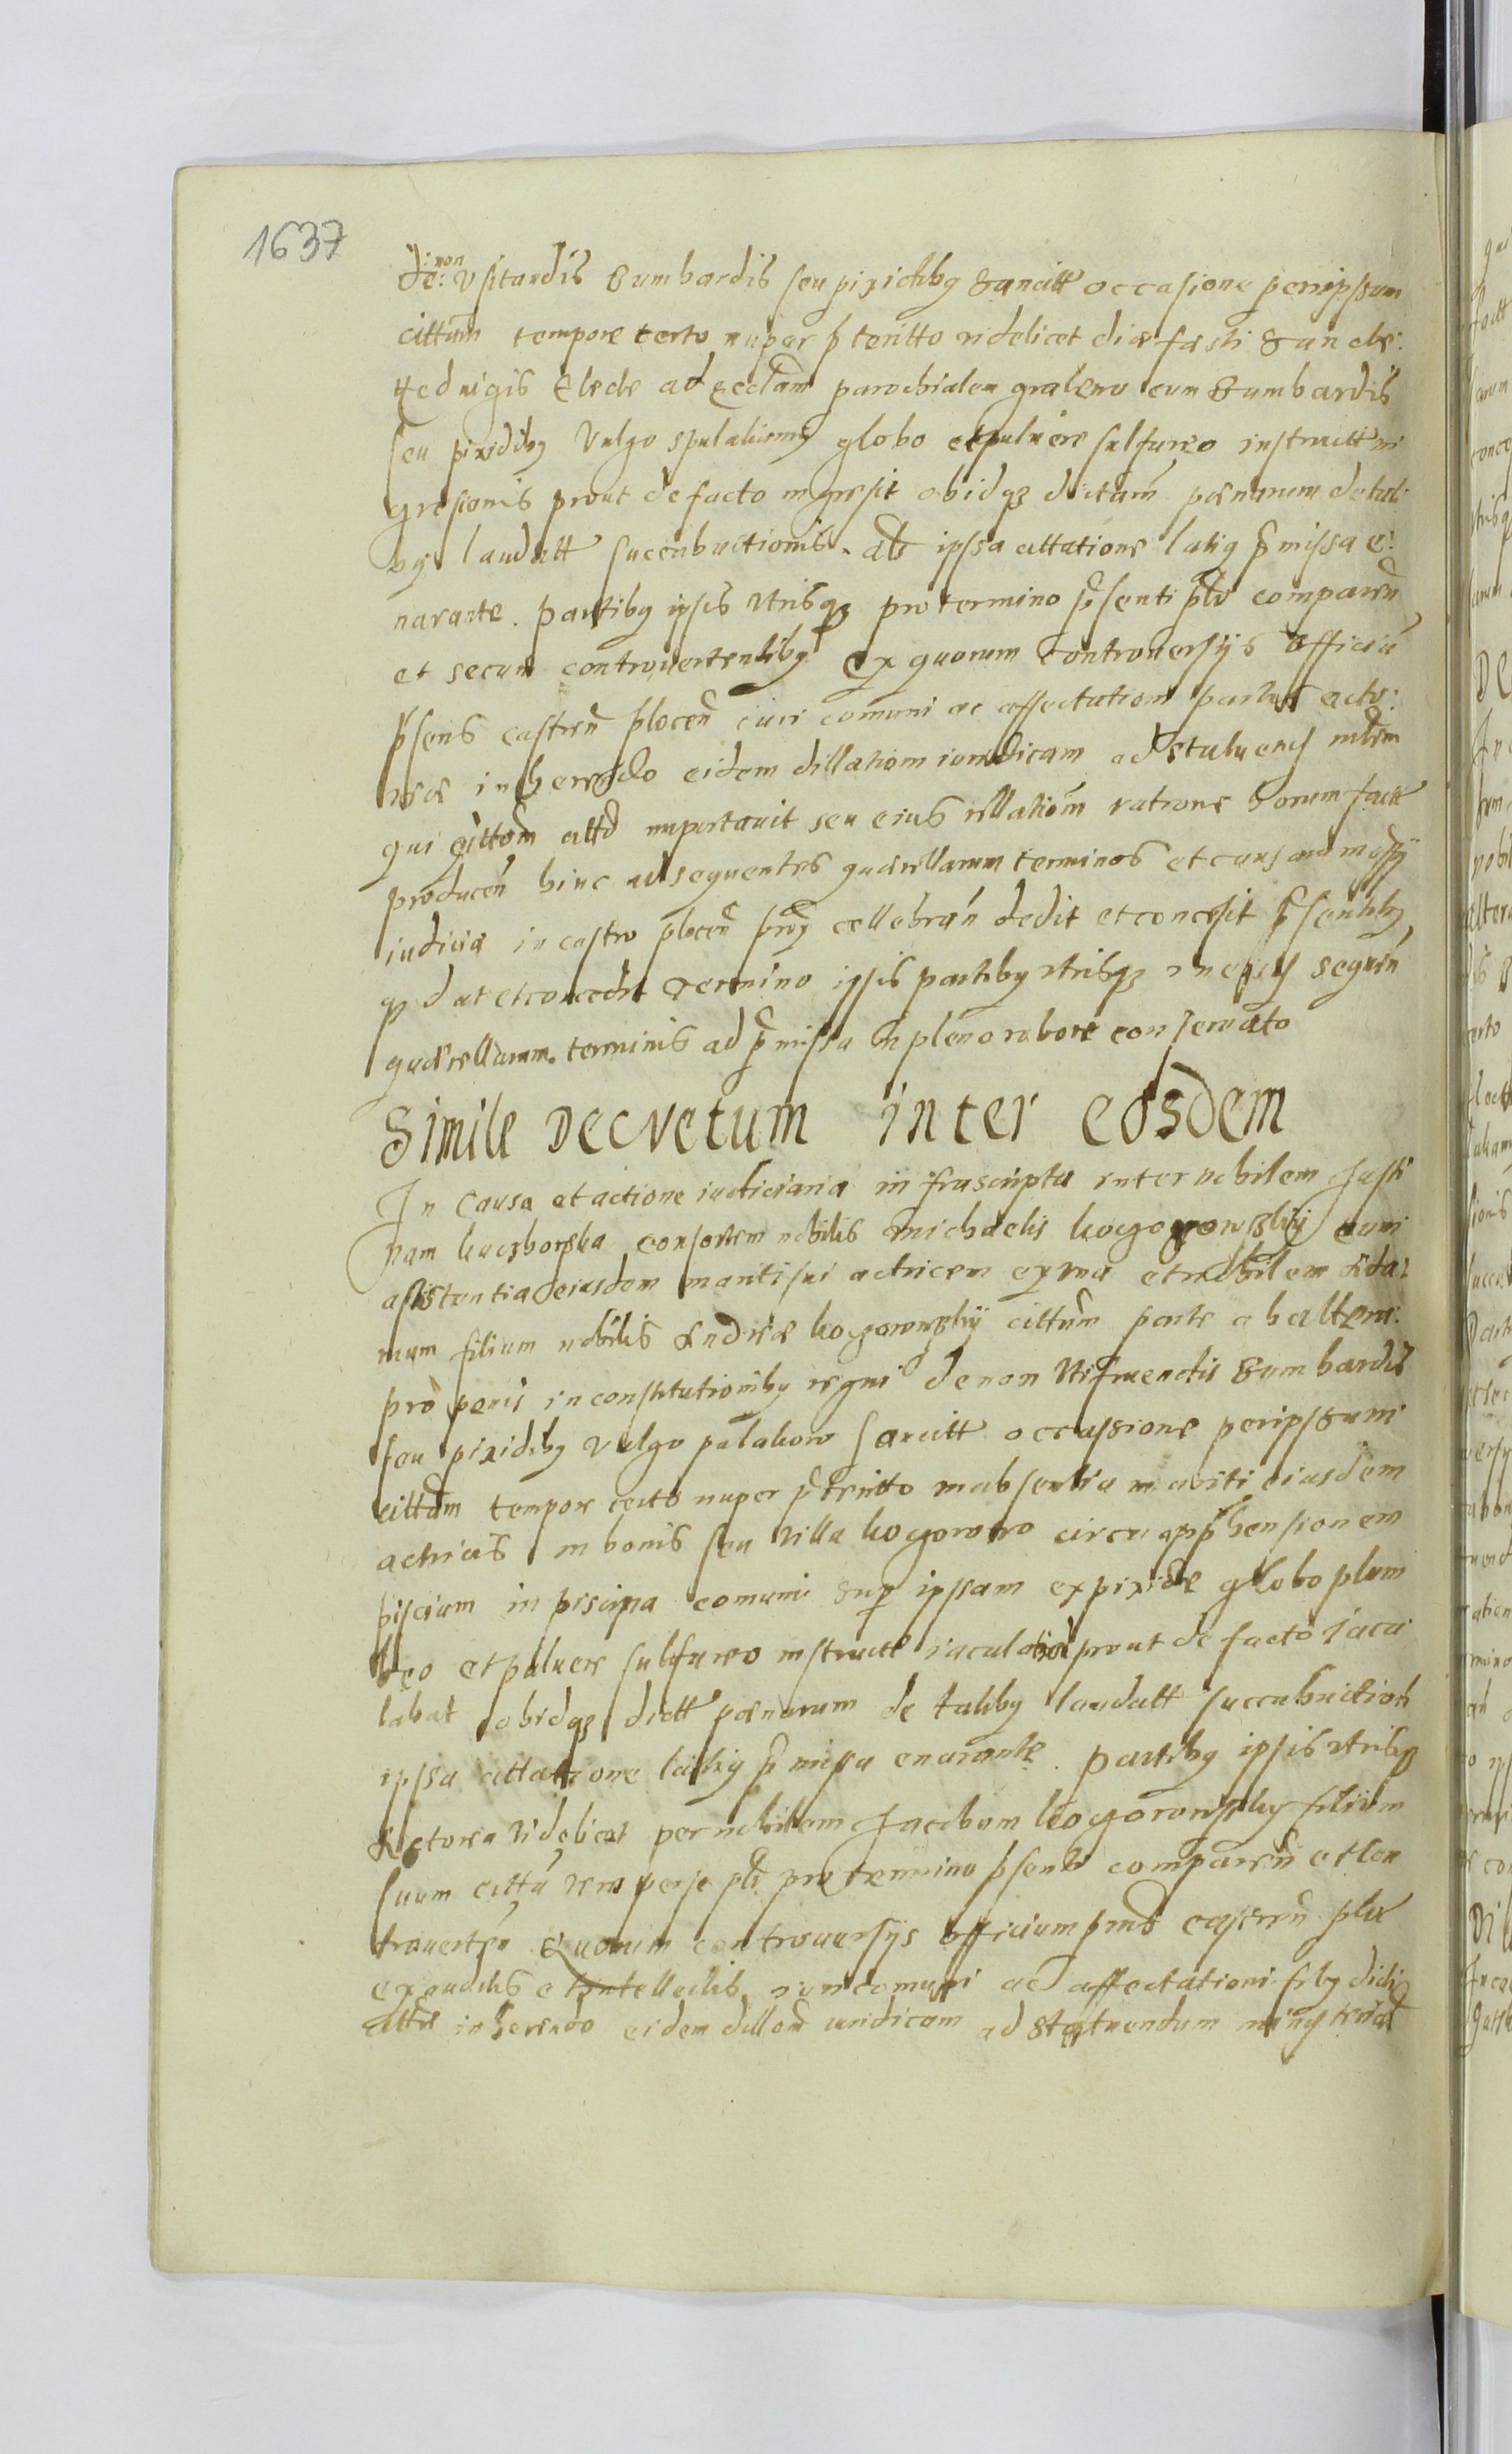 1637
de: non Vsitandis Bumbardis seu pixidibg Sancitt occasione per ipsum
cittum tempore certo nuper pteritto videlicet die festi Sanctae:
Hedvigis Electe ad Eccłam parochialem gralewo cum Bumbardis
seu pixidibg Vulgo spulakiem globo et puluere sulfureo instructt in
gresionis prout de facto ingresit ob idqz dictam paenarum de tali
bg laudatt succubuitionis. ab ipsa cittatione latig pmissa e:
narante. Partibg ipsis Vtrisqz pro termino psenti ptr comparen
et secum controuertentibg ex quorum controuersijs Officiu
psens castren plocen iuri comuni ac affectationi partis acto:
reae inherendo eidem dillationem iuridicam ad statuend mtrem
qui cittom alld importauit seu eius rellationem ratione horum fact
producen hinc ad sequentes quaerellarum terminos et causarum offy
iudicia in castro plocen prox cellebran dedit et concesit psentibg
qz dat et concedit termino ipsis partibg Vtrisqz in eqs sequen
quaerellarum terminis ad pmissa in pleno robore conseruato
Simile Decretum inter eosdem
In Causa et actione iudiciaria infrascripta inter nobilem Justi
nam kuczborska consortem nobilis Michaelis kogorowskij cum
asistentia eiusdem mariti sui actricem ex vna et nobilem Ada:
mum filium nobilis Andreae kogorowskij cittum parte ab altera:
pro penis in constitutionibg regni de non Vtifruendis Bumbardis
seu pixidibg Vulgo pulakow sancitt occassione per ipssum
cittum tempore certo nuper pteritto in absentia mariti eiusdem
actricis in bonis seu villa kogorowo circu appphensionem
piscium in piscina comuni sup ipsam ex pixide globo plum
beo et puluere sulfureo instructt iaculationis prout de facto iacu
labat ob idqz dictt paenarum de talibg laudatt succubuitionis
ipsa cittatione latig pmissa enarante. Partibg ipsis Vtrisqz
Actorea videlicet per nobilem Jacobum kogorowsky filium
suum cittu vero per se ptr pro termino psenti comparen et con
trouerten Quorum controuersijs Officium pns castren ploc
exauditis et intellectis iuri comuni ac affectationi filij dicti
cittae inherendo eidem dillaom iuridicam ad Statuendum ministerial